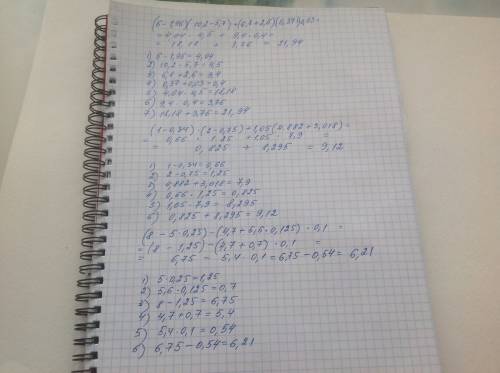 (6 - 1,96)(10,2 - 5,7) + (6,8 + 2,6)(0,37 + 0,03) =
= 4,04 · 4,5 + 9,4 · 0,4 =
= 18,18 + 3,76 = 21,94
1) 6 - 1,96 = 4,04
2) 10,2 - 5,7 = 4,5
3) 6,8 + 2,6 = 9,4
4) 0,37 + 0,03 = 0,4
5) 4,04 · 4,5 = 18,18
6) 9,4 · 0,4 = 3,76
7) 18,18 + 3,76 = 21,94
(1 - 0,34) · (2 - 0,75) + 1,05 (4,882 + 3,018) =
= 0,66 · 1,25 + 1,05 · 7,9 =
= 0,825 + 8,295 = 9,12
1) 1 - 0,34 = 0,66
2) 2 - 0,75 = 1,25
3) 4,882 + 3,018 = 7,9
4) 0,66 · 1,25 = 0,825
5) 1,05 · 7,9 = 8,295
6) 0,825 + 8,295 = 9,12
(8 - 5 · 0,25) - (4,7 + 5,6 · 0,125) · 0,1 =
= (8 - 1,25) - (4,7 + 0,7) · 0,1 =
= 6,75 - 5,4 · 0,1 = 6,75 - 0,54 = 6,21
1) 5 · 0,25 = 1,25
2) 5,6 · 0,125 = 0,7
3) 8 - 1,25 = 6,75
4) 4,7 + 0,7 = 5,4
5) 5,4 · 0,1 = 0,54
6) 6,75 - 0,54 = 6,21